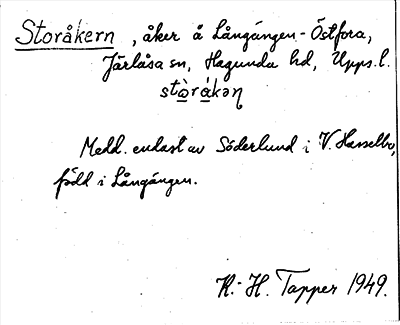 Storåkern, åker å Långängen-Östfora,
Järlåsa sn, Hagunda hd, Upps. l.
stòrákən̥
Medd. endast av Söderlund i V. Hasselbo,
född i Långängen.
K.-H. Tapper 1949.